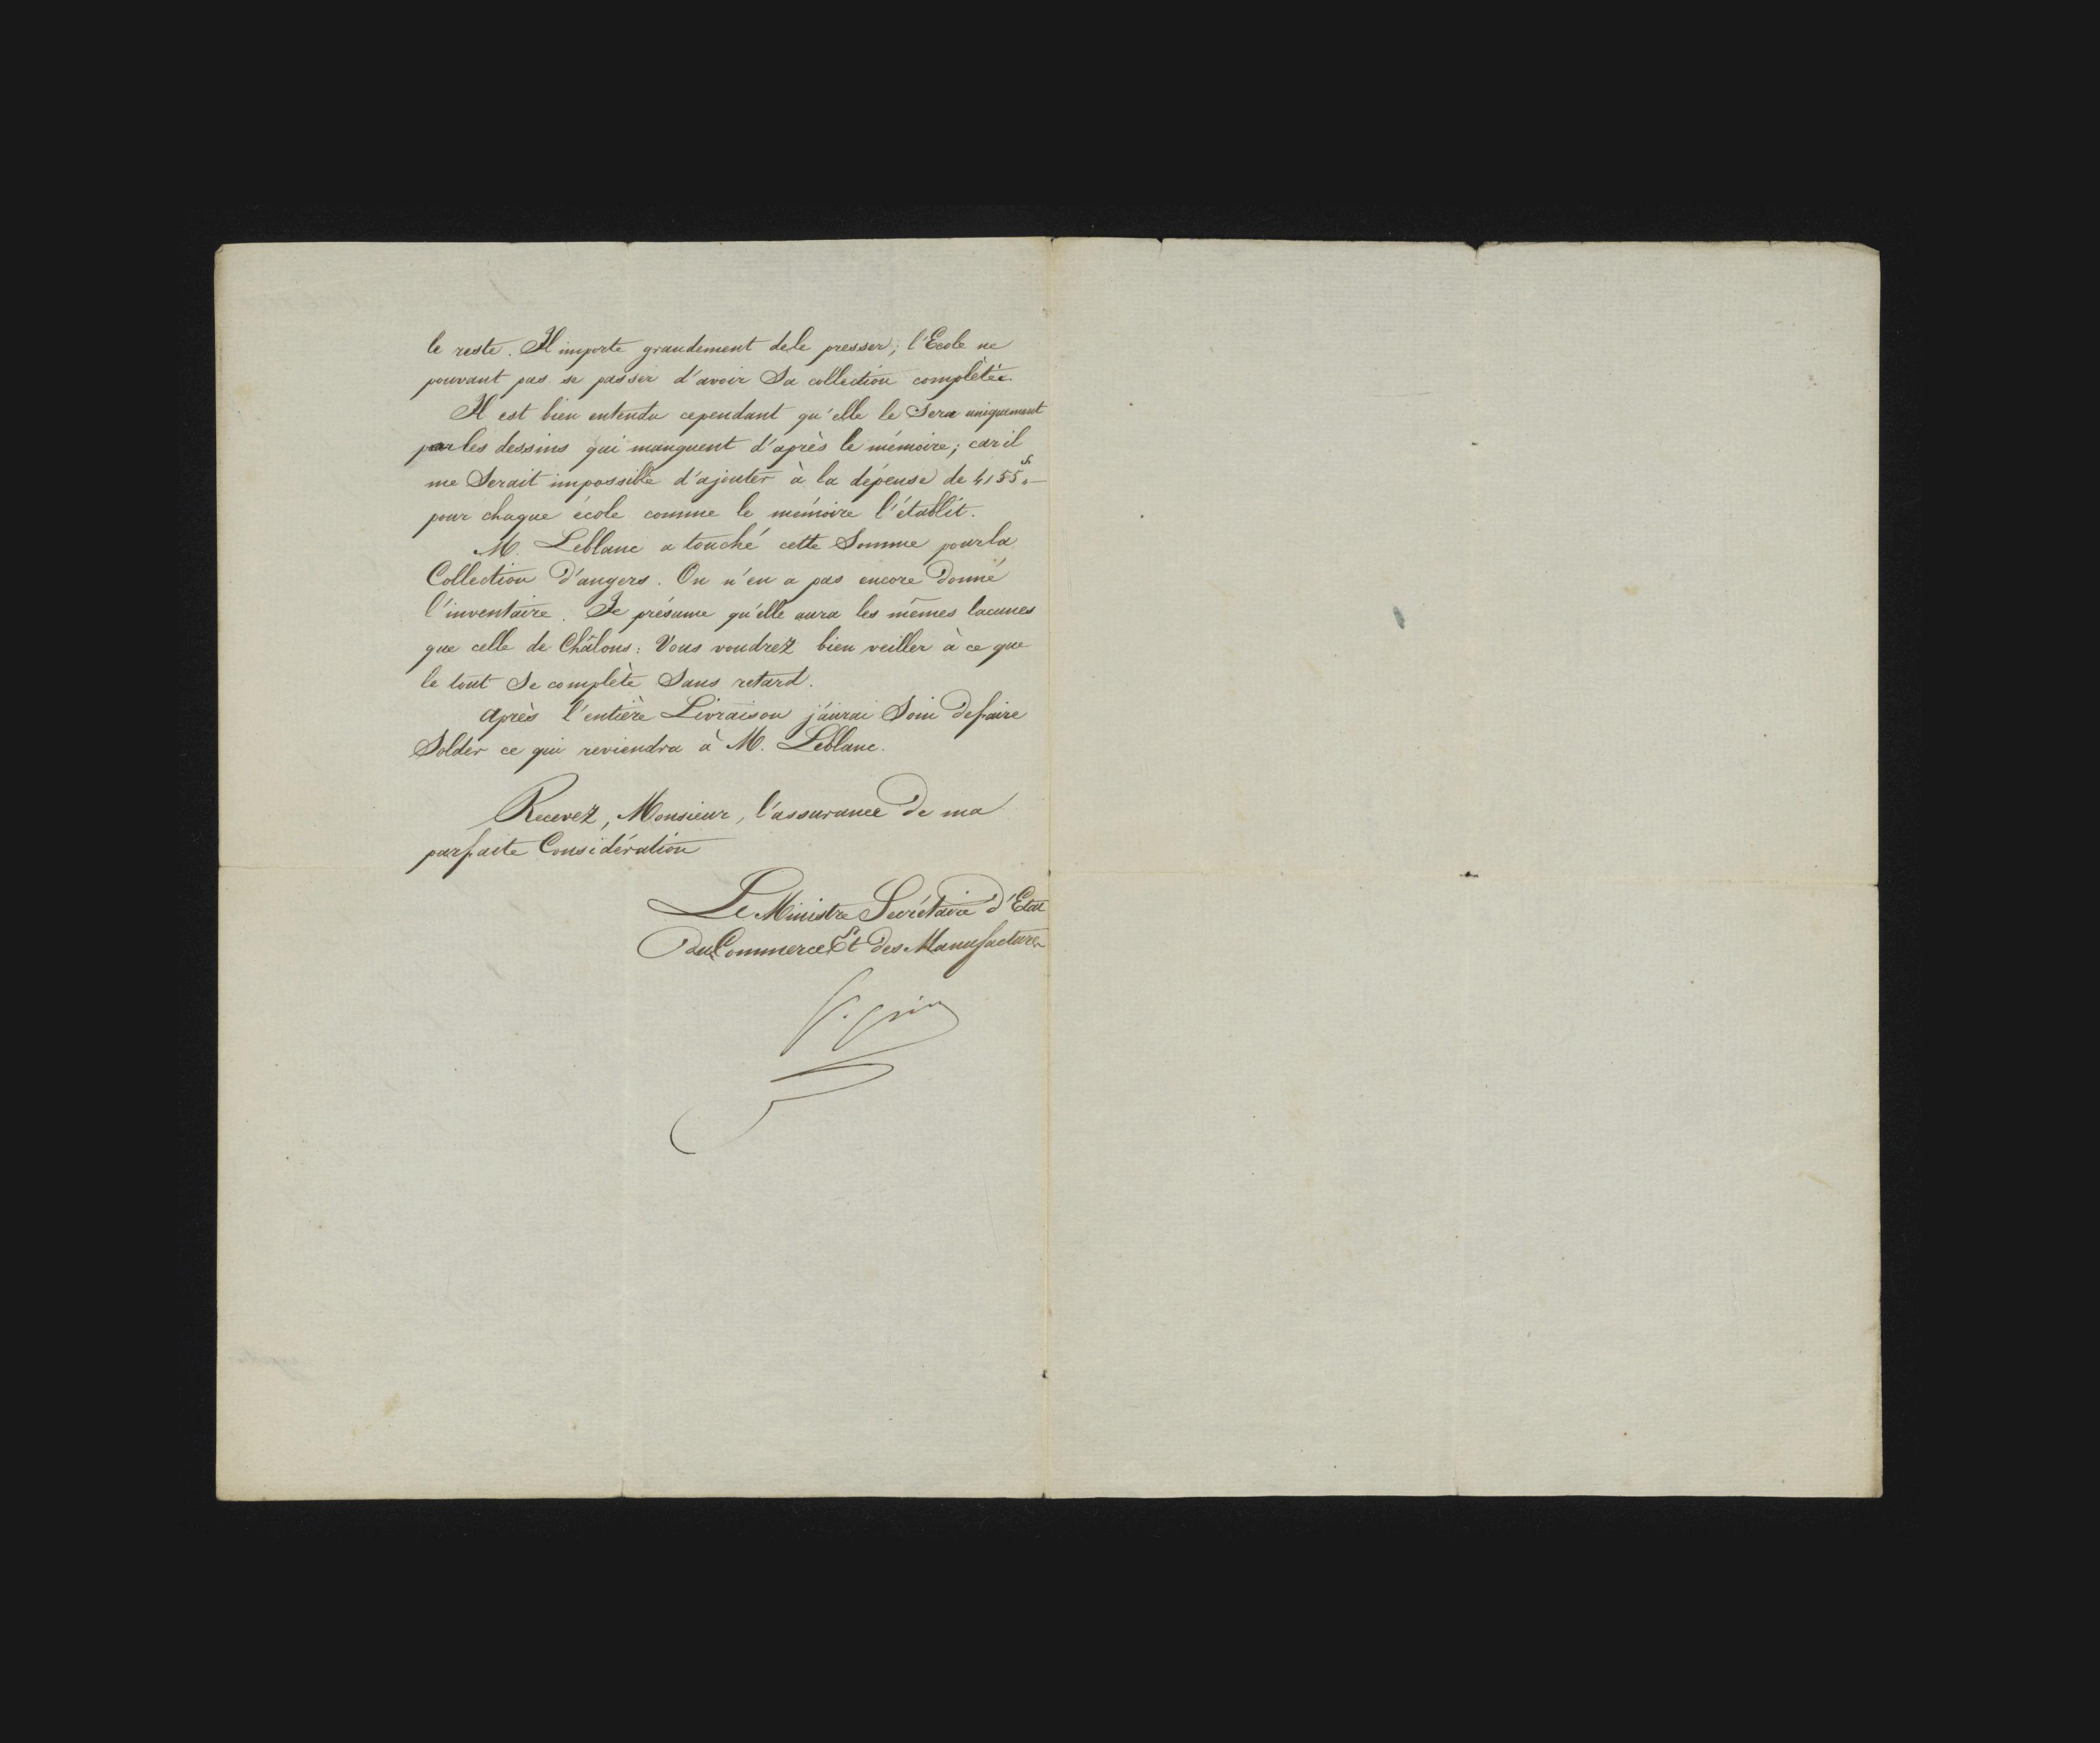 le reste. Il importe grandement de le presser; l'Ecole ne
pouvant pas se passer d'avoir Sa collection complètée.
Il est bien entendu cependant qu'elle le Sera uniquement
par les dessins qui manquent d'après le mémoire; car il
me Serait impossible d'ajouter à la dépense de 4155 f.
pour chaque école comme le mémoire l'établit.
M. Leblanc a touché cette Somme pour la
Collection d'angers. On n'en a pas encore donné
l'inventaire. Je présume qu'elle aura les mêmes lacunes
que celle de Châlons: Vous voudrez bien veiller à ce que
le tout Se complète Sans retard.
Après l'entière Livraison j'aurai Soin de faire
Solder ce qui reviendra à M. Leblanc.
Recevez, Monsieur, l'assurance de ma
parfaite Considération
Le Ministre Secrétaire d'Etat
du Commerce Et des Manufactures